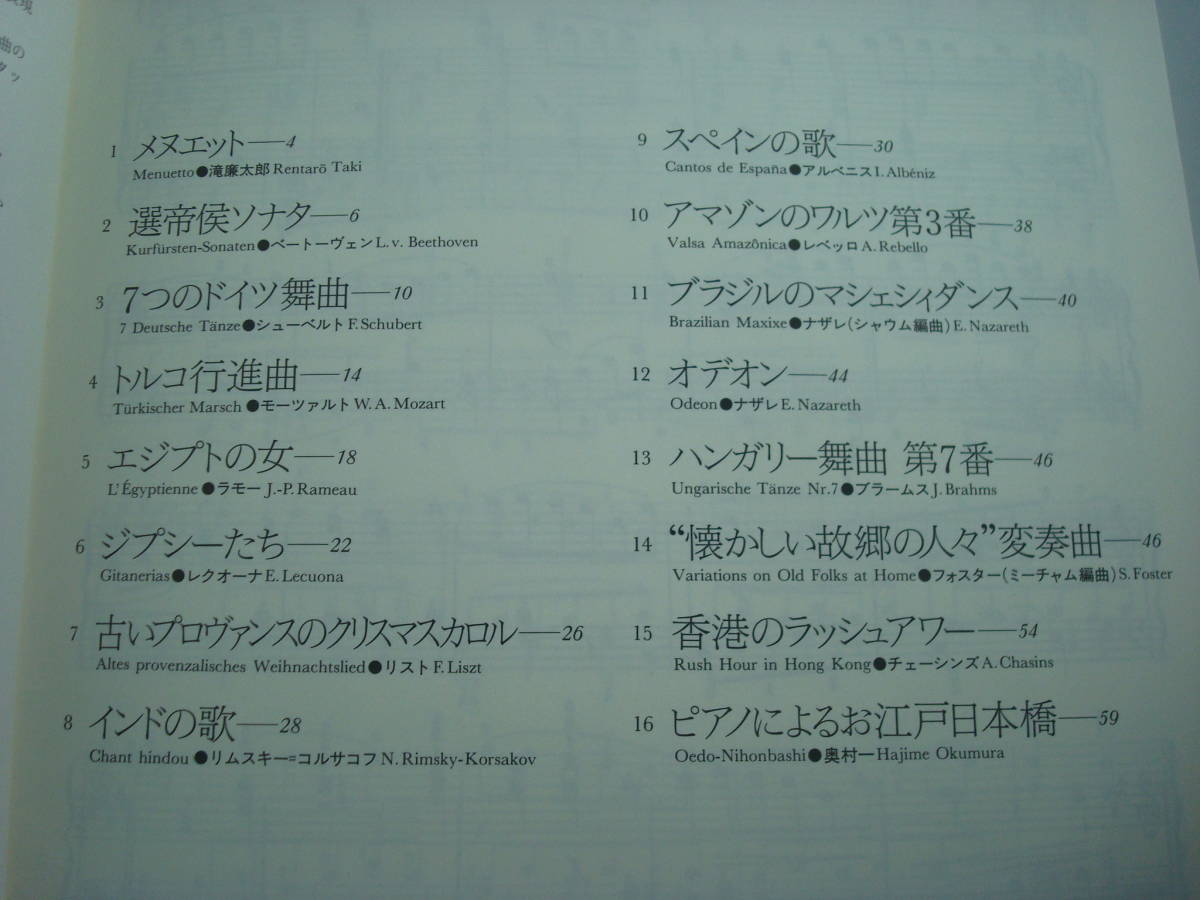 曲の
1 メヌエット——4
Menuetto●滝廉太郎 Rentarō Taki
2 選帝侯ソナタ——6
Kurfürsten-Sonaten●ベートーヴェン L. v. Beethoven
3 7つのドイツ舞曲——10
7 Deutsche Tänze●シューベルト F. Schubert
4 トルコ行進曲——14
Türkischer Marsch●モーツァルト W. A. Mozart
5 エジプトの女——18
L'Égyptienne●ラモー J.-P. Rameau
6 ジプシーたち——22
Gitanerias●レクオーナ E. Lecuona
7 古いプロヴァンスのクリスマスカロル——26
Altes provenzalisches Weihnachtslied●リスト F. Liszt
8 インドの歌——28
Chant hindou●リムスキー=コルサコフ N. Rimsky-Korsakov
9 スペインの歌——30
Cantos de España●アルベニス I. Albéniz
10 アマゾンのワルツ第3番——38
Valsa Amazônica●レベッロ A. Rebello
11 ブラジルのマシェシィダンス——40
Brazilian Maxixe●ナザレ(シャウム編曲) E. Nazareth
12 オデオン——44
Odeon●ナザレ E. Nazareth
13 ハンガリー舞曲 第7番——46
Ungarische Tänze Nr.7●ブラームス J. Brahms
14 “懐かしい故郷の人々”変奏曲——46
Variations on Old Folks at Home●フォスター(ミーチャム編曲) S. Foster
15 香港のラッシュアワー——54
Rush Hour in Hong Kong●チェーシンズ A. Chasins
16 ピアノによるお江戸日本橋——59
Oedo-Nihonbashi●奥村一 Hajime Okumura